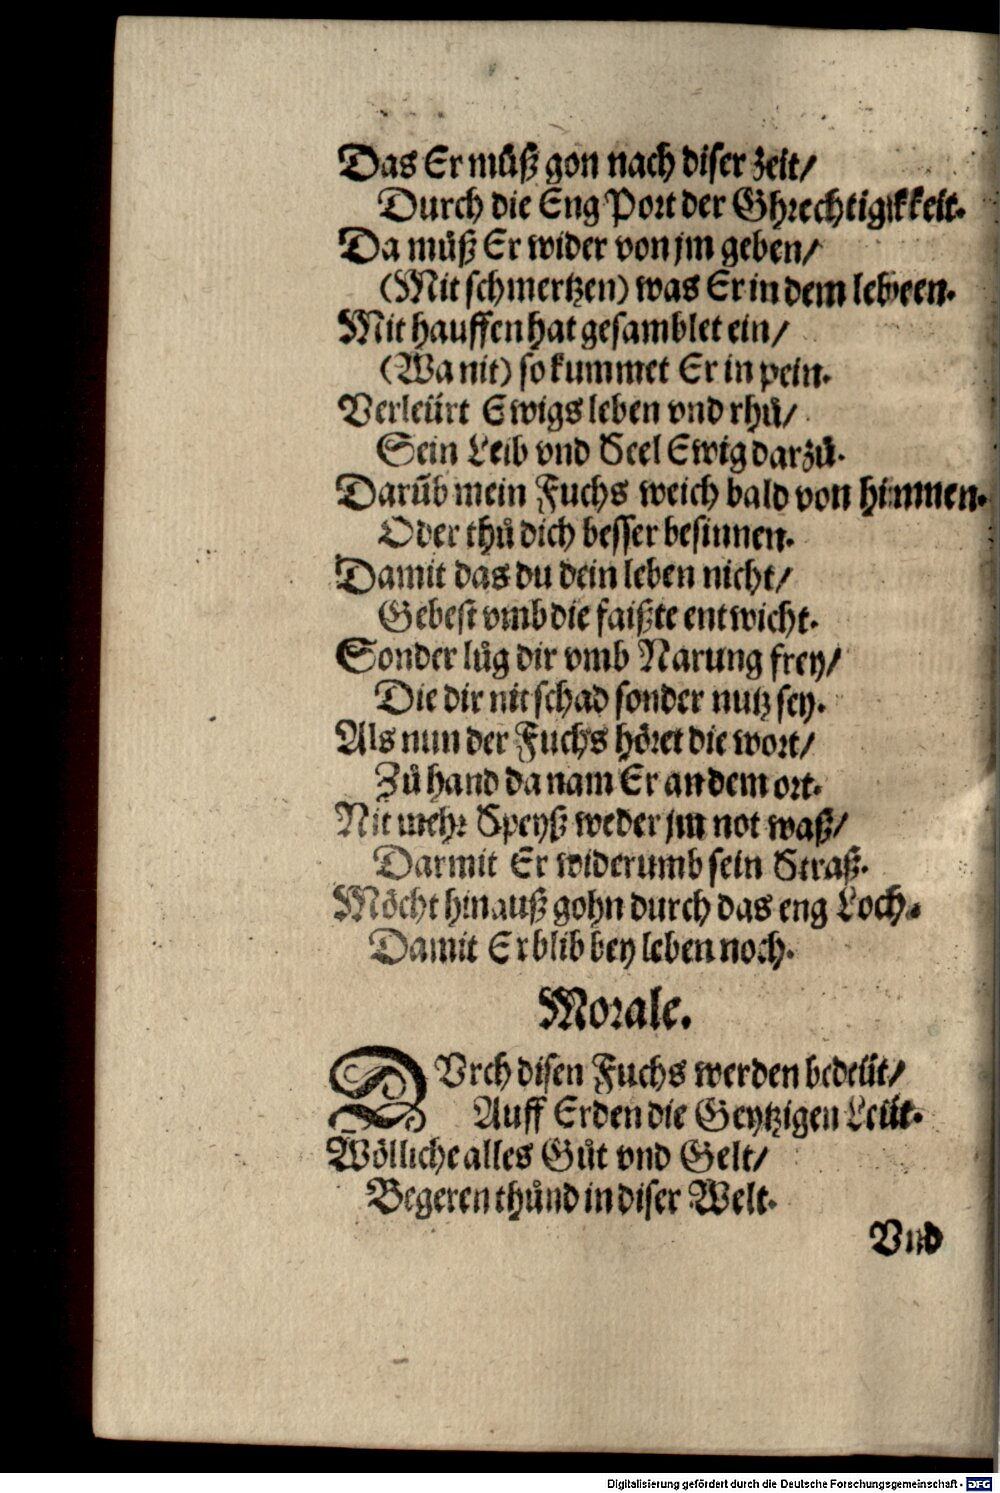 Das Er můß gon nach diser zeit/
Durch die Eng Port der Ghrechtigikkeit.
Da můß Er wider von jm geben/
(Mit schmertzen) was Er in dem lebeen.
Mit hauffen hat gesamblet ein/
(Wa nit) so kummet Er in pein.
Verleürt Ewigs leben vnd rhů/
Sein Leib vnd Seel Ewig darzů.
Darũb mein Fuchs weich bald von hinnen.
Oder thů dich besser besinnen.
Damit das du dein leben nicht/
Gebest vmb die faißte entwicht.
Sonder lůg dir vmb Narung frey/
Die dir nit schad sonder nutz sey.
Als nun der Fuchs höret die wort/
Zů hand da nam Er an dem ort.
Nit mehr Speyß weder jm not waß/
Darmit Er widerumb sein Straß.
Möcht hinauß gohn durch das eng Loch.
Damit Er blib bey leben noch.
Morale.
DVrch disen Fuchs werden bedeüt/
Auff Erden die Geytzigen Leüt.
Wölliche alles Gůt vnd Gelt/
Begeren thůnd in diser Welt.
Vnd
Digitalisierung gefördert durch die Deutsche Forschungsgemeinschaft - DFG